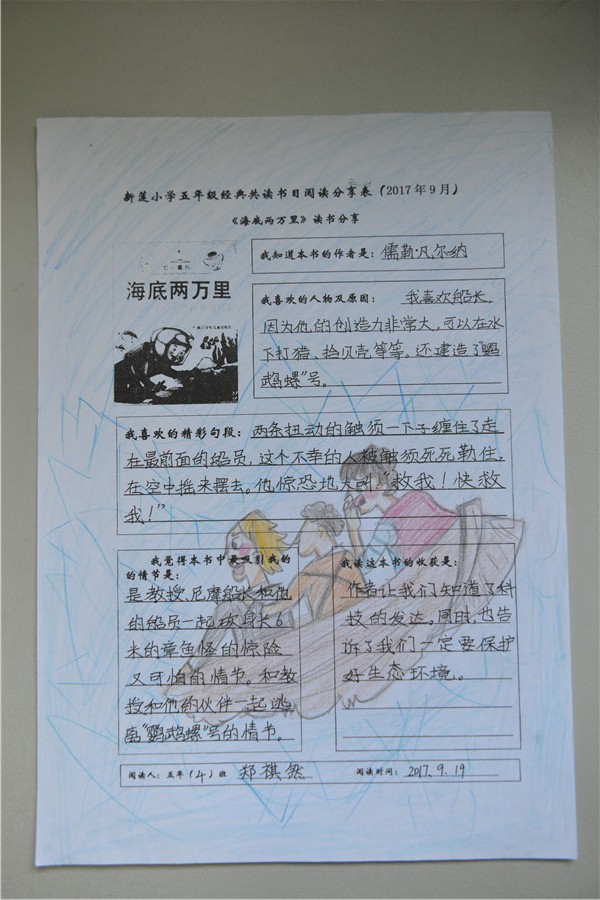 新莲小学五年级经典共读书目阅读分享表（2017年9月）
《海底两万里》读书分享
海底两万里
我知道本书的作者是：儒勒·凡尔纳
我喜欢的人物及原因：我喜欢船长，
因为他的创造力非常大，可以在水
下打猎、拾贝壳等等。还建造了“鹦
鹉螺”号。
我喜欢的精彩句段：两条扭动的触须一下子缠住了走
在最前面的船员，这个不幸的人被触须死死勒住，
在空中摇来摆去。他惊恐地大叫，“救我！快救
我！”
我觉得本书中最吸引我的
的情节是：
是教授、尼摩船长和他
的船员一起杀身长6
米的章鱼怪的惊险
又可怕的情节。和教
授和他的伙伴一起逃
离“鹦鹉螺”号的情书。
我读这本书的收获是：
作者让我们知道了科
技的发达。同时，也告
诉了我们一定要保护
好生态环境。
阅读人：五年（4）班 郑祺然 阅读时间：2017.9.19